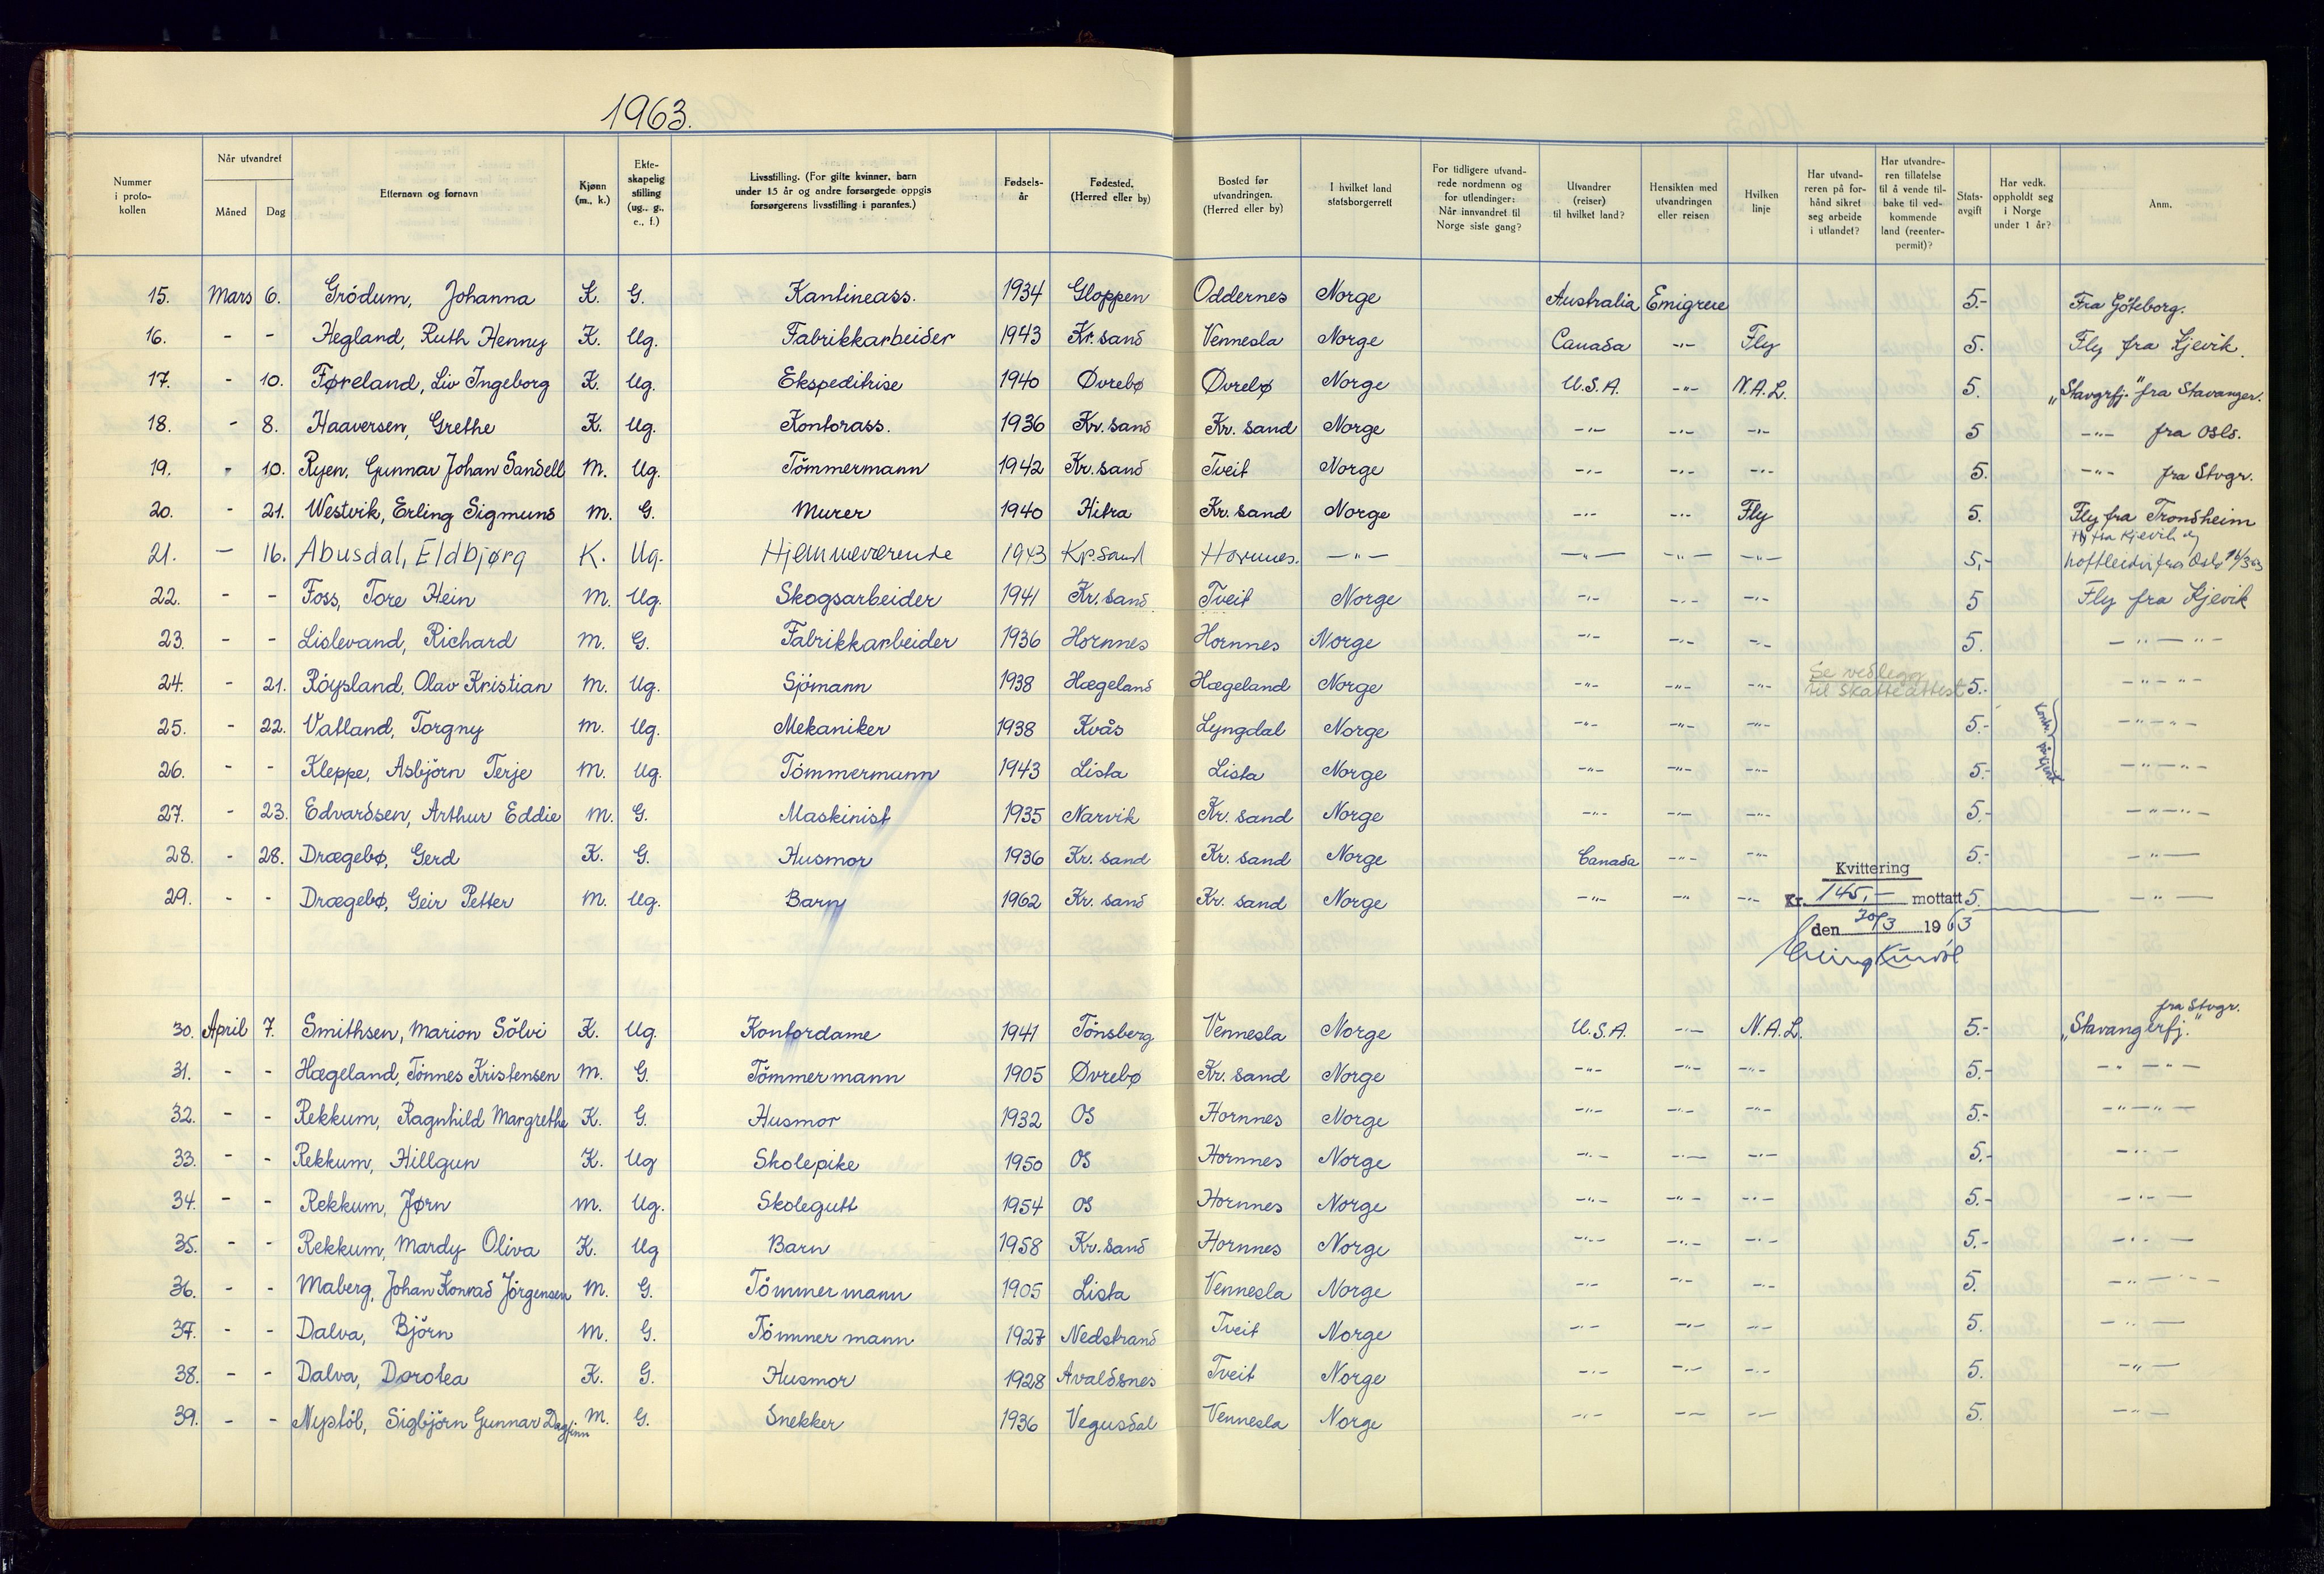 1963.
Nummer i proto-kollen | Når utvandret Måned | Dag | Etternavn og fornavn | Kjønn (m., k.) | Ekte-skapelig stilling (ug., g., e., f.) | Livsstilling. (For gifte kvinner, barn under 15 år og andre forsørgede oppgis forsørgerens livsstilling i parantes.) | Fødsels-år | Fødested. (Herred eller by) | Bosted før utvandringen. (Herred eller by) | I hvilket land statsborgerrett | For tidligere utvand-rede nordmenn og for utlendinger: Når innvandret til Norge siste gang? | Utvandrer (reiser) til hvilket land? | Hensikten med utvandringen eller reisen | Hvilken linje | Har utvand-reren på for-hånd sikret seg arbeide i utlandet? | Har utvandre-ren tillatelse til å vende til-bake til ved-kommende land (reenter-permit)? | Stats-avgift | Har vedk. oppholdt seg i Norge under 1 år? | Anm.
15. Mars 6. Grödum, Johanna K. G. Kantineass. 1934 Gloppen Oddernes Norge Australia Emigrere 5.- Fra Göteborg.
16. - - Hegland, Ruth Henny K. Ug. Fabrikkarbeider 1943 Kr. sand Vennesla Norge Canada -"- Fly 5. Fly fra Kjevik.
17. - 10. Føreland, Liv Ingeborg K. Ug. Ekspeditrise 1940 Øvrebø Øvrebø Norge U.S.A. -"- N.A.L. 5. "Stavgrfj." fra Stavanger.
18. - 8. Haaversen, Grethe K. Ug. Kontorass. 1936 Kr. sand Kr. sand Norge -"- -"- -"- 5 -"- fra Oslo.
19. - 10. Ryen, Gunnar Johan Sandell M. Ug. Tömmermann 1942 Kr. sand Tveit Norge -"- -"- -"- 5. -"- fra Stvgr.
20. - 21. Westvik, Erling Sigmund M. G. Murer 1940 Hitra Kr. sand Norge -"- -"- Fly 5. Fly fra Trondheim
21. - 16. Abusdal, Eldbjørg K. Ug. Hjemmeværende 1943 Kr. sand Hornnes. -"- -"- -"- -"- 5,- Fly fra Kjevik og
loftleidir fra Oslo 16/3 63
22. - - Foss, Tore Hein M. Ug. Skogsarbeider 1941 Kr. sand. Tveit Norge -"- -"- -"- 5 Fly fra Kjevik
23. - - Lislevand, Richard M. G. Fabrikkarbeider 1936 Hornnes Hornnes Norge -"- -"- -"- 5. -"- -"-
24. - 21. Röysland, Olav Kristian M. Ug. Sjömann 1938 Hægeland Hægeland Norge -"- -"- -"- Se vedlegg til skatteattest 5.- -"- -"-
25. - 22. Vatland, Torgny M. Ug. Mekaniker 1938 Kvås Lyngdal Norge -"- -"- -"- 5.- -"- -"-
26. - - Kleppe, Asbjörn Terje M. Ug. Tömmermann 1943 Lista Lista Norge -"- -"- -"- 5.- -"- -"-
27. - 23. Edvardsen, Arthur Eddie M. G. Maskinist 1935 Narvik Kr. sand Norge -"- -"- -"- 5.- -"- -"-
28. - 28. Drægebø, Gerd K. G. Husmor 1936 Kr. sand Kr. sand Norge Canada -"- -"- 5.- -"-
29. - - Drægebø, Geir Petter M. Ug. Barn 1962 Kr. sand Kr. sand Norge -"- -"- -"- 5. -"-
Kvittering
Kr. 145,- mottatt
den 30/3 1963
30. April 7. Smithsen, Marion Sölvi K. Ug. Kontordame 1941 Tönsberg Vennesla Norge U.S.A. -"- N.A.L. 5.- "Stavangerfj." fra Stvgr.
31. - - Hægeland, Tönnes Kristensen M. G. Tömmermann 1905 Øvrebø Kr. sand Norge -"- -"- -"- 5.- -"- -"-
32. - - Rekkum, Ragnhild Margrethe K. G. Husmor 1932 Os Hornnes Norge -"- -"- -"- 5.- -"- -"-
33. - - Rekkum, Hillgun K. Ug Skolepike 1950 Os Hornnes Norge -"- -"- -"- 5.- -"-
34. - - Rekkum, Jørn M. Ug. Skolegutt 1954 Os Hornnes Norge -"- -"- -"- 5.- -"-
35. - - Rekkum, Mardy Oliva K. Ug Barn 1958 Kr. sand Hornnes Norge -"- -"- -"- 5.- -"-
36. - - Maberg, Johan Konrad Jörgensen M. G. Tömmermann 1905 Lista Vennesla Norge -"- -"- -"- 5. -"- -"-
37. - - Dalva, Björn M. G. Tömmermann 1927 Nedstrand Tveit Norge -"- -"- -"- 5. -"-
38. - - Dalva, Dorotea K. G. Husmor 1928 Avaldsnes Tveit Norge -"- -"- -"- 5. -"-
39. - - Nystöl, Sigbjörn Gunnar Dagfinn M. G. Snekker 1936 Vegusdal Vennesla Norge -"- -"- -"- 5. -"-